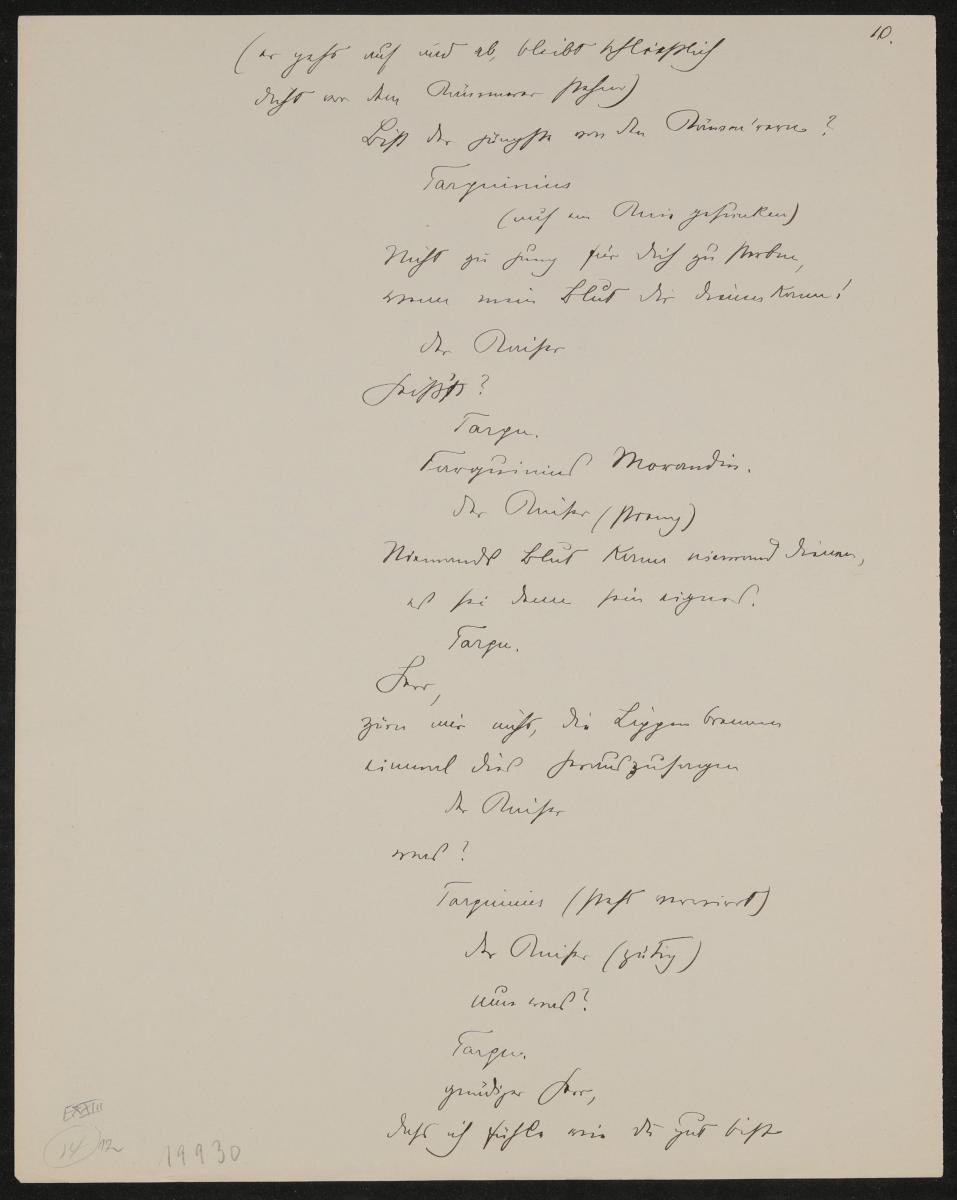 10.
(er geht auf und ab, bleibt schliesslich
dicht vor dem Kämmerer stehen)
Bist der jüngste von den Kämm'rern?
Tarquinius
(auf ein Knie gesunken)
Nicht zu jung für dich zu sterben,
wenn mein Blut dir dienen kann!
der Kaiser
heiss't?
Tarqu.
Tarquinius Morandin.
der Kaiser (streng)
Niemands Blut kann niemand dienen,
es sei denn sein eignes.
Tarqu.
Herr,
zürn mir nicht, die Lippen brennen
einmal dies herauszusagen
der Kaiser
was?
Tarquinius (steht verwirrt)
der Kaiser (gütig)
nun was?
Tarqu.
gnädiger Herr,
dass ich fühle wie du gut bist
EXXIII
14 12
19930